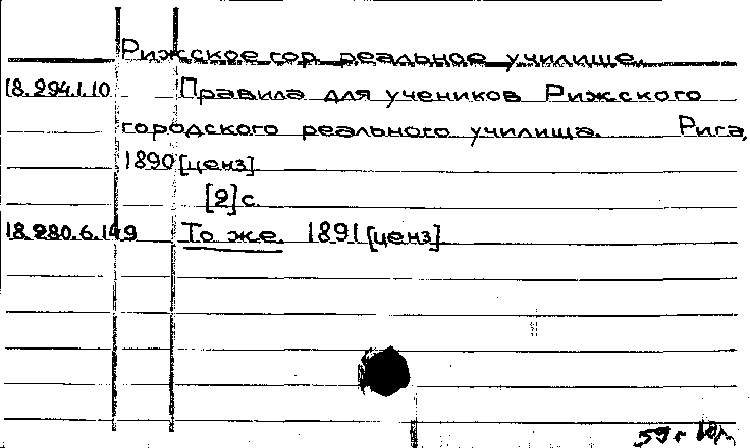 Рижское гор. реальное училище.
18.294.1.10 Правила для учеников Рижского
городского реального училища. Рига,
1890 [ценз]
[2] с.
18.280.6.149 То же. 1891 [ценз]
59 г